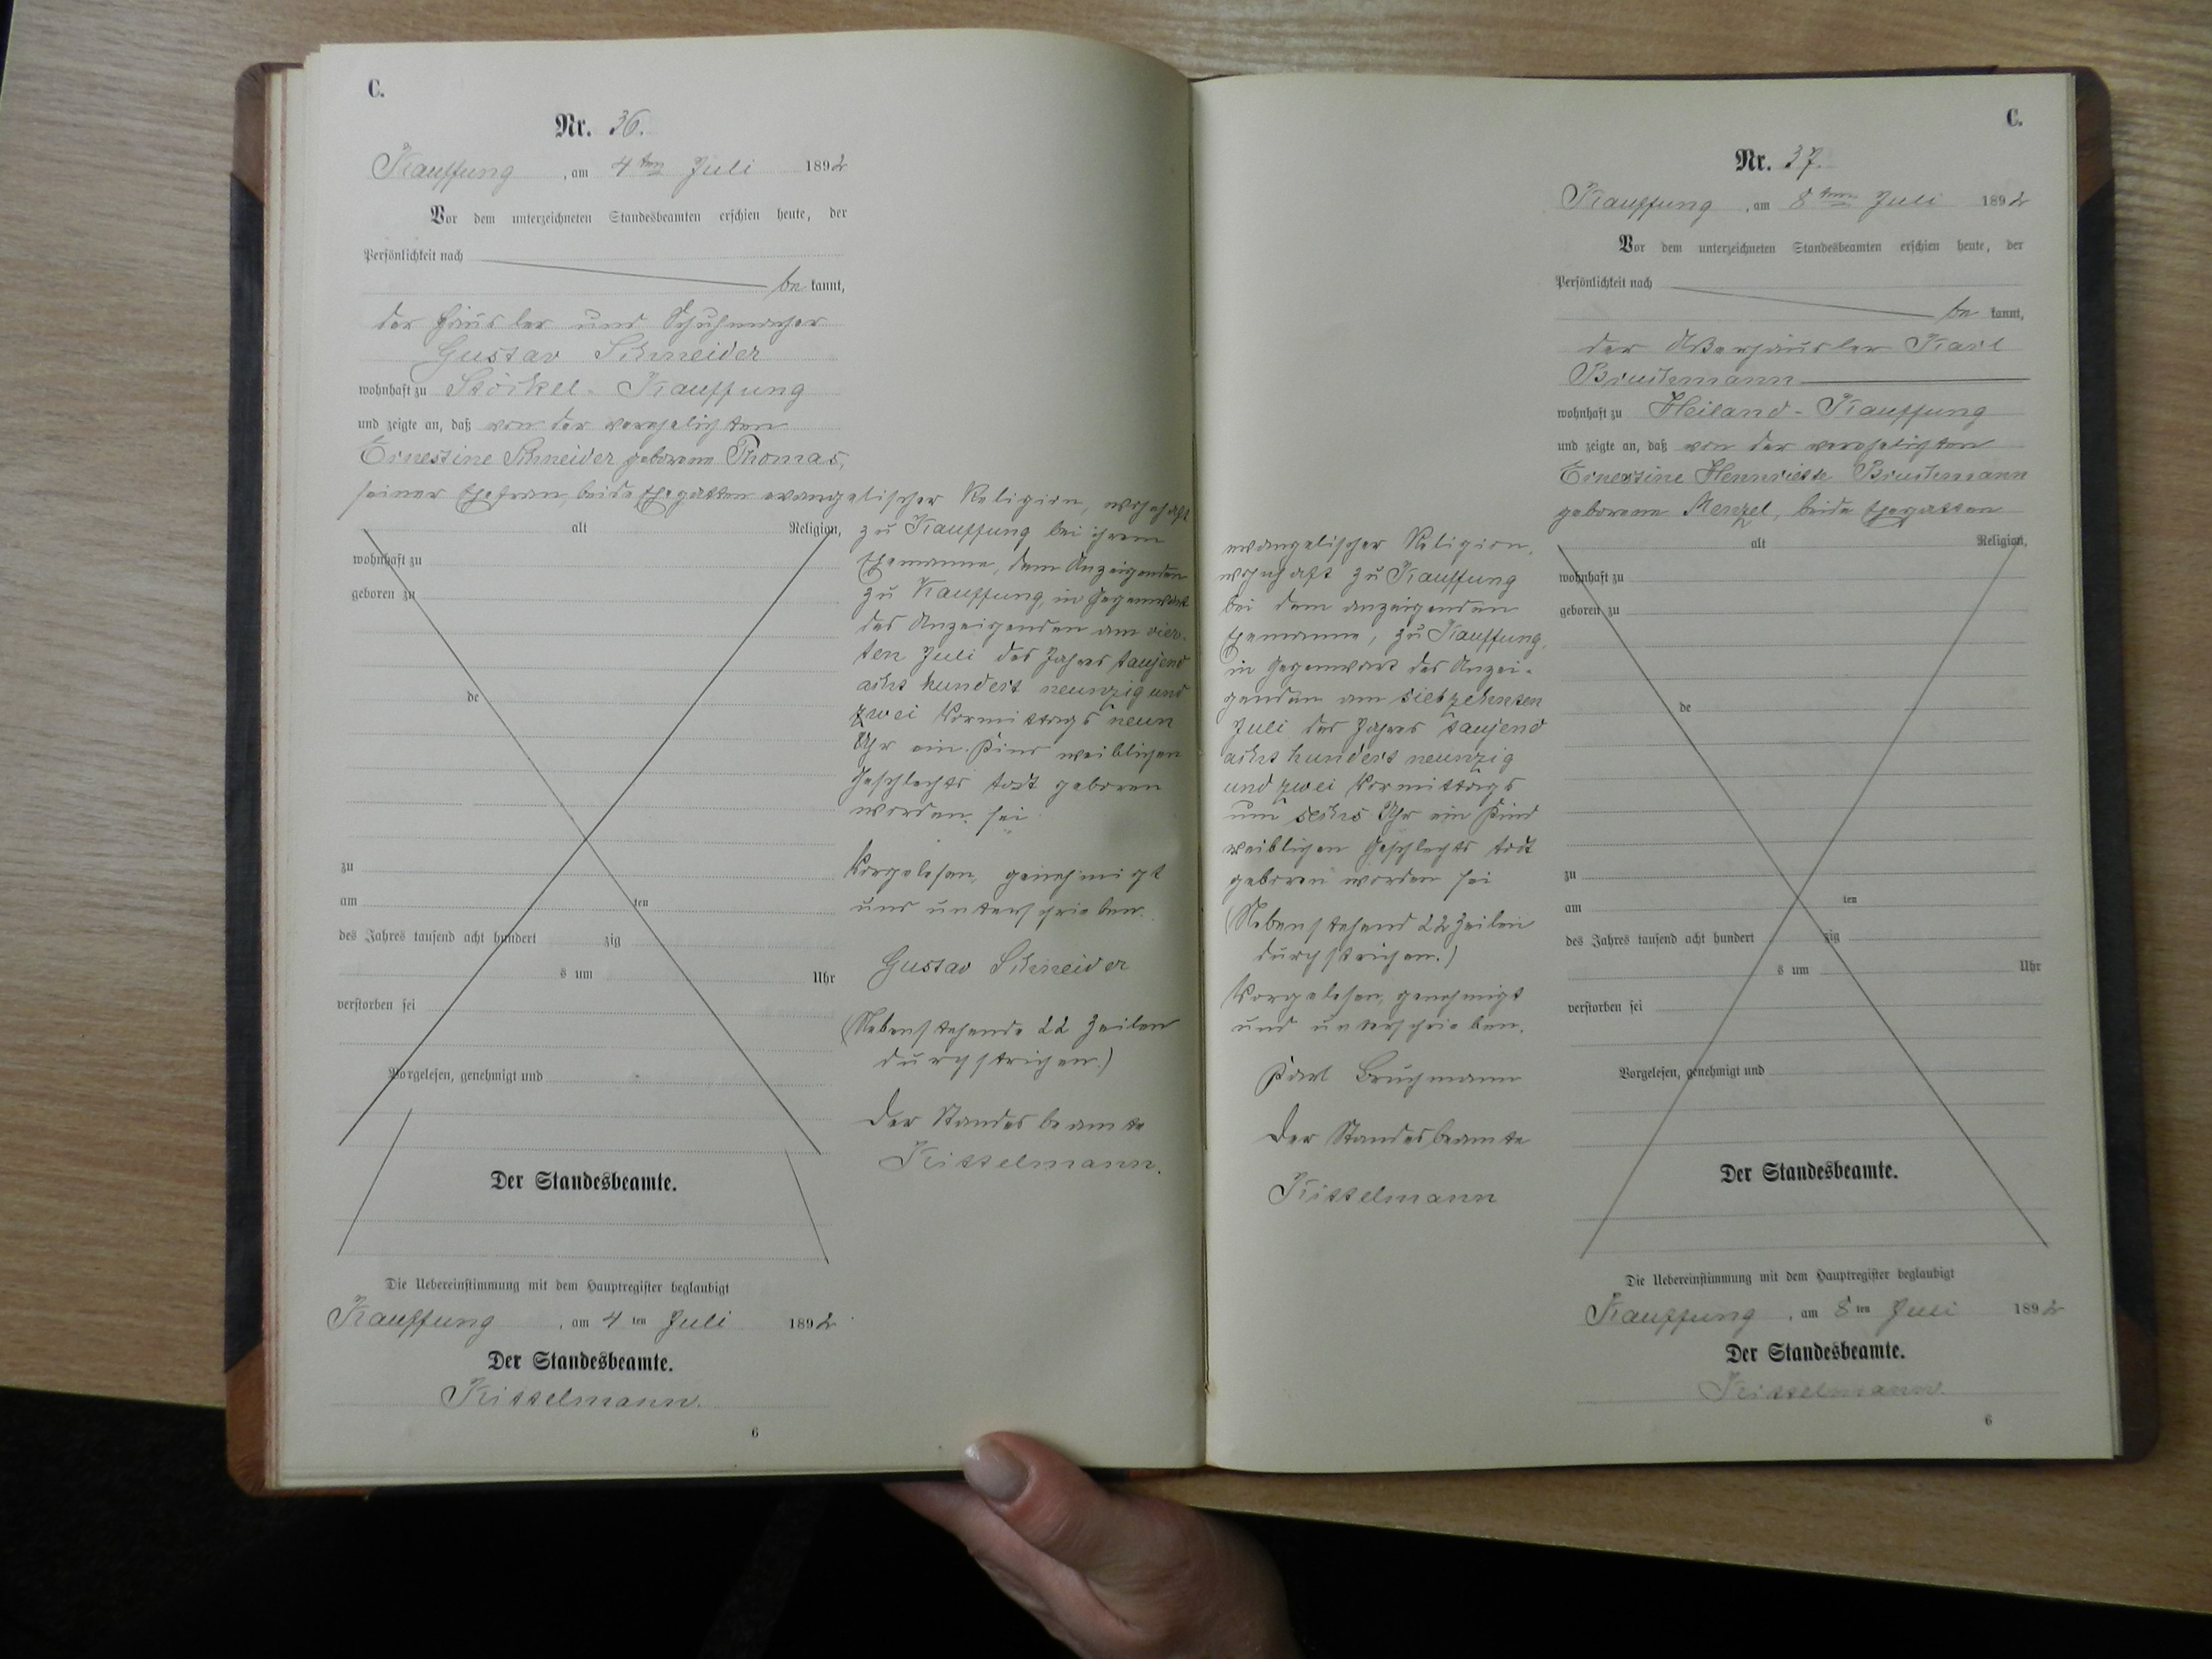 C.
Nr. 36.
Kauffung, am 4ten Juli 1892
Vor dem unterzeichneten Standesbeamten erschien heute, der
Persönlichkeit nach
be kannt,
der Häusler und Schuhmacher
Gustav Schneider
wohnhaft zu Stöckel-Kauffung
und zeigte an, daß von der verehelichten
Ernestine Schneider geborene Thomas,
seiner Ehefrau, beide Ehegatten evangelischer Religion, wohnhaft
zu Kauffung bei ihrem
Ehemanne, dem Anzeigenden
zu Kauffung, in Gegenwart
des Anzeigenden am vier-
ten Juli des Jahres tausend
acht hundert neunzig und
zwei Vormittags neun
Uhr ein Kind weiblichen
Geschlechts todt geboren
worden sei
Vorgelesen, genehmigt
und unterschrieben.
Gustav Schneider
(Nebenstehende 22 Zeilen
durchstrichen.)
Der Standesbeamte
Kisselmann.
alt Religion,
wohnhaft zu
geboren zu
de
zu
am ten
des Jahres tausend acht hundert zig
s um Uhr
verstorben sei
Vorgelesen, genehmigt und
Der Standesbeamte.
Die Uebereinstimmung mit dem Hauptregister beglaubigt
Kauffung, am 4 ten Juli 1892
Der Standesbeamte.
Kisselmann.
6
C.
Nr. 37.
Kauffung, am 8ten Juli 1892
Vor dem unterzeichneten Standesbeamten erschien heute, der
Persönlichkeit nach
be kannt,
der Karl
Bruchmann
wohnhaft zu Heiland-Kauffung
und zeigte an, daß von der verehelichten
Ernestine Henriette Bruchmann
geborene Menzel, beide Ehegatten
evangelischer Religion,
wohnhaft zu Kauffung
bei dem anzeigenden
Ehemanne, zu Kauffung,
in Gegenwart des Anzei-
genden am siebzehnten
Juli des Jahres tausend
acht hundert neunzig
und zwei Vormittags
um sechs Uhr ein Kind
weiblichen Geschlechts todt
geboren worden sei
(Nebenstehend 22 Zeilen
durchstrichen.)
Vorgelesen, genehmigt
und unterschrieben.
Karl Bruchmann
Der Standesbeamte
Kisselmann
alt Religion,
wohnhaft zu
geboren zu
de
zu
am ten
des Jahres tausend acht hundert zig
s um Uhr
verstorben sei
Vorgelesen, genehmigt und
Der Standesbeamte.
Die Uebereinstimmung mit dem Hauptregister beglaubigt
Kauffung, am 8 ten Juli 1892
Der Standesbeamte.
Kisselmann.
6